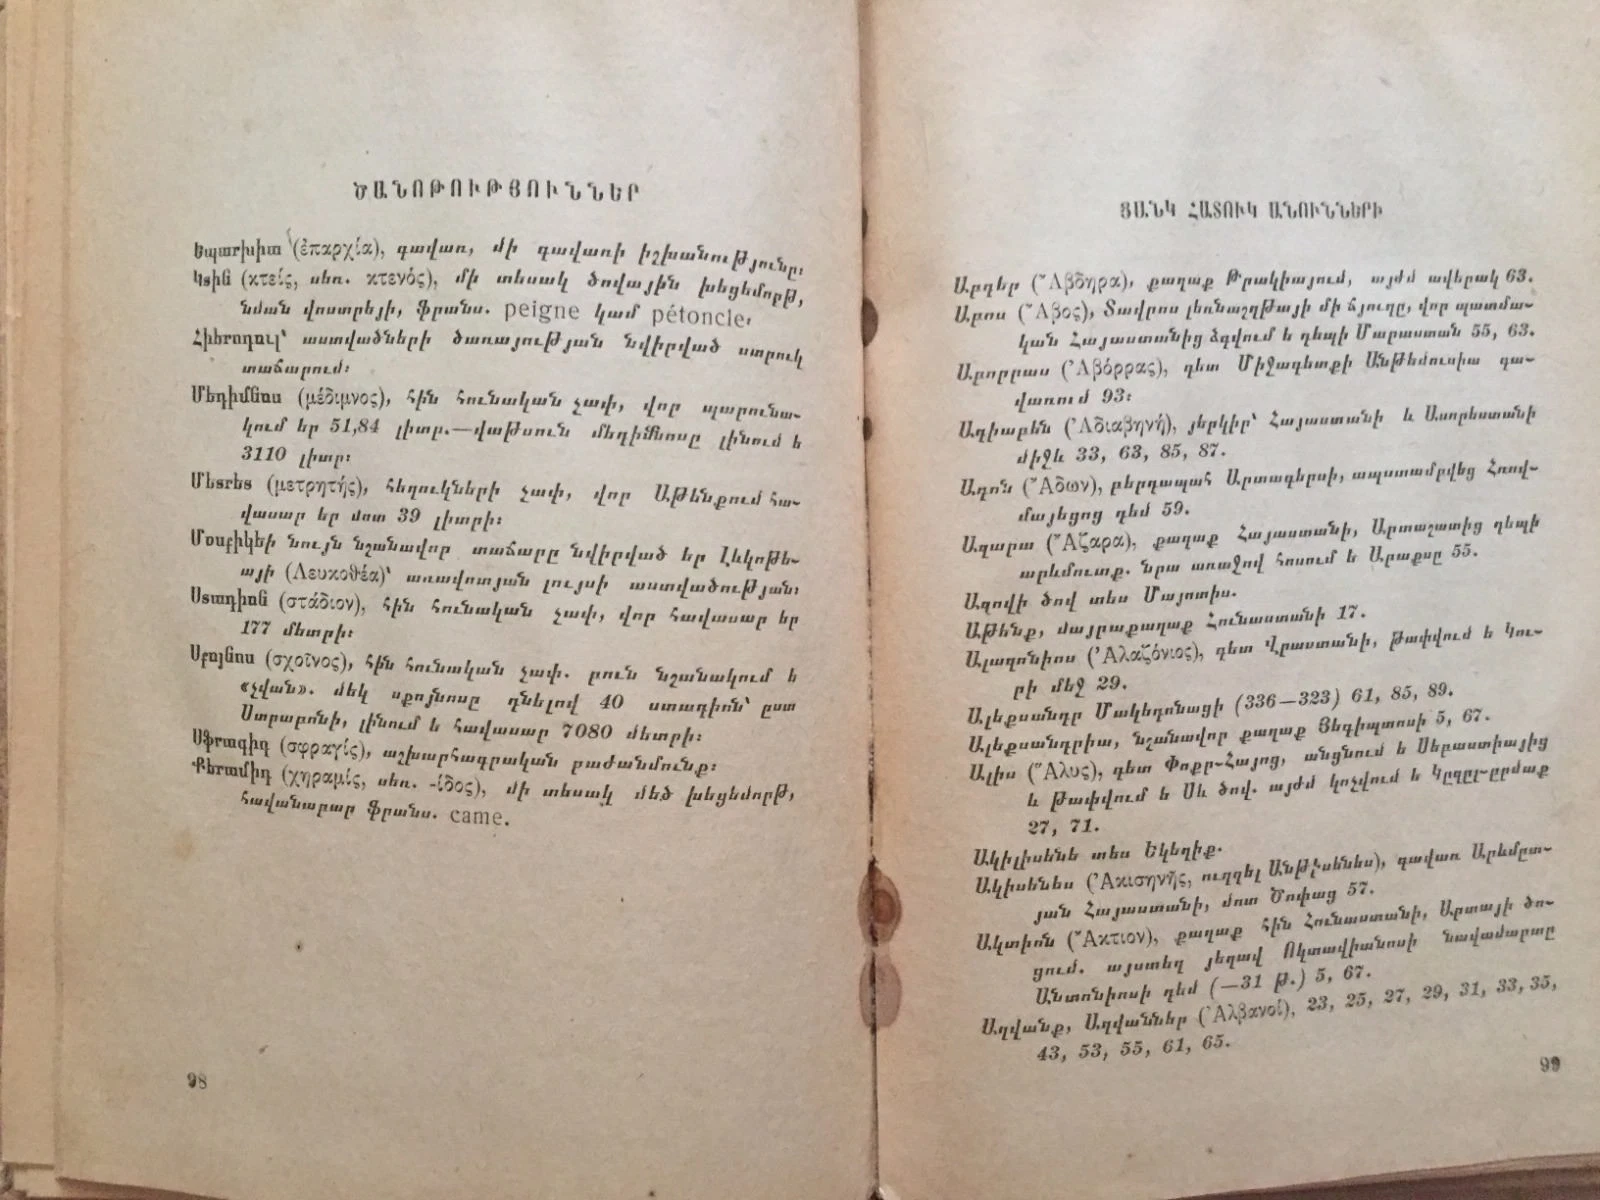 ԾԱՆՈԹՈՒԹՅՈՒՆՆԵՐ
Եպարխիա (ἐπαρχία), գավառ, մի գավառի իշխանությունը։
Կտին (κτείς, սեռ. κτενός), մի տեսակ ծովային խեցեմորթ,
նման վոստրեյի, ֆրանս. peigne կամ pétoncle։
Հիերոդուլ՝ աստվածների ծառայության նվիրված ստրուկ
տաճարում։
Մեդիմնոս (μέδιμνος), հին հունական չափ, վոր պարունա-
կում եր 51,84 լիտր.—վաթսուն մեդիմնոսը լինում ե
3110 լիտր։
Մետրետ (μετρητής), հեղուկների չափ, վոր Աթենքում հա-
վասար եր մոտ 39 լիտրի։
Մոսքիկեի նույն նշանավոր տաճարը նվիրված եր Լևկոթե-
այի (Λευκοθέα)՝ առավոտյան լույսի աստվածության։
Ստադիոն (στάδιον), հին հունական չափ, վոր հավասար եր
177 մետրի։
Սքոյնոս (σχοῖνος), հին հունական չափ. բուն նշանակում ե
«չվան». մեկ սքոյնոսը դնելով 40 ստադիոն՝ ըստ
Ստրաբոնի, լինում ե հավասար 7080 մետրի։
Սֆրագիդ (σφραγίς), աշխարհագրական բաժանմունք։
Քերամիդ (χηραμίς, սեռ. -ίδος), մի տեսակ մեծ խեցեմորթ,
հավանաբար ֆրանս. came.
98
ՑԱՆԿ ՀԱՏՈՒԿ ԱՆՈՒՆՆԵՐԻ
Աբդեր (Ἄβδηρα), քաղաք Թրակիայում, այժմ ավերակ 63.
Աբոս (Ἄβος), Տավրոս լեռնաշղթայի մի ճյուղը, վոր պատմա-
կան Հայաստանից ձգվում ե դեպի Մարաստան 55, 63.
Աբորրաս (Ἀβόρρας), գետ Միջագետքի Անթեմուսիա գա-
վառում 93։
Ադիաբեն (Ἀδιαβηνή), յերկիր՝ Հայաստանի և Ասորեստանի
միջև 33, 63, 85, 87.
Ադոն (Ἄδων), բերդապահ Արտագերսի, ապստամբվեց Հռով-
մայեցոց դեմ 59.
Ազարա (Ἄζαρα), քաղաք Հայաստանի, Արտաշատից դեպի
արևմուտք. նրա առաջով հոսում ե Արաքսը 55.
Ազովի ծով տես Մայոտիս.
Աթենք, մայրաքաղաք Հունաստանի 17.
Ալազոնիոս (Ἀλαζόνιος), գետ Վրաստանի, թափվում ե Կու-
րի մեջ 29.
Ալեքսանդր Մակեդոնացի (336—323) 61, 85, 89.
Ալեքսանդրիա, նշանավոր քաղաք Յեգիպտոսի 5, 67.
Ալիս (Ἅλυς), գետ Փոքր-Հայոց, անցնում ե Սեբաստիայից
և թափվում ե Սև ծով. այժմ կոչվում ե Կըզըլ-ըրմաք
27, 71.
Ակիլիսենե տես Եկեղիք.
Ակիսենես (Ἀκισηνῆς, ուղղել Անթիսենես), գավառ Արևմըտ-
յան Հայաստանի, մոտ Ծոփաց 57.
Ակտիոն (Ἄκτιον), քաղաք հին Հունաստանի, Արտայի ծո-
ցում. այստեղ յեղավ Ոկտավիանոսի նավամարտը
Անտոնիոսի դեմ (—31 թ.) 5, 67.
Աղվանք, Աղվաններ (Ἀλβανοί), 23, 25, 27, 29, 31, 33, 35,
43, 53, 55, 61, 65.
99